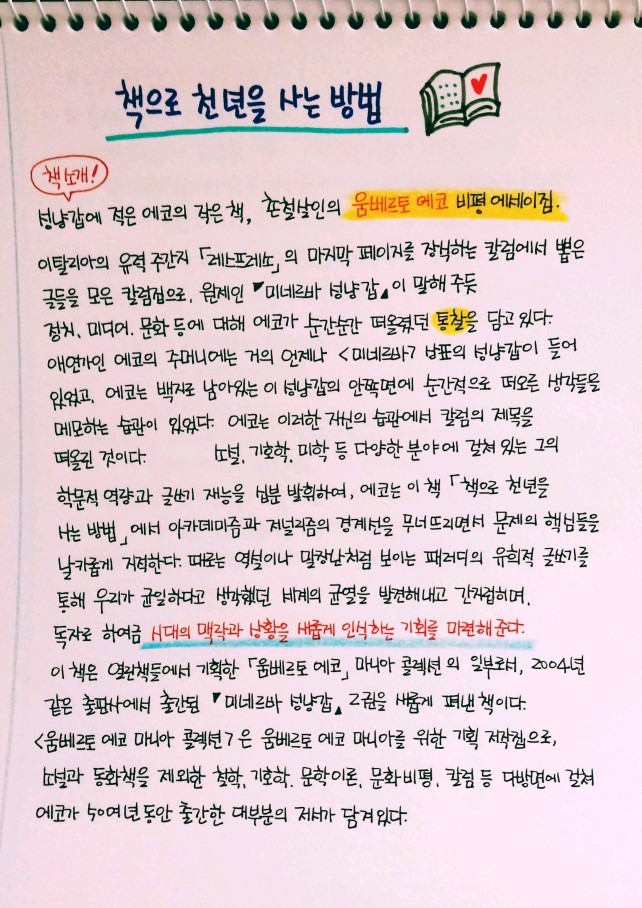 책으로 천년을 사는 방법
책소개!
성냥갑에 적은 에코의 작은 책, 촌철살인의 움베르토 에코 비평 에세이집.
이탈리아의 유력 주간지 「레스프레소」의 마지막 페이지를 장식하는 칼럼에서 뽑은
글들을 모은 칼럼집으로, 원제인 『미네르바 성냥갑』이 말해 주듯
정치, 미디어, 문화 등에 대해 에코가 순간순간 떠올렸던 통찰을 담고 있다.
애연가인 에코의 주머니에는 거의 언제나 <미네르바> 상표의 성냥갑이 들어
있었고, 에코는 백지로 남아있는 이 성냥갑의 안쪽면에 순간적으로 떠오른 생각들을
메모하는 습관이 있었다. 에코는 이러한 자신의 습관에서 칼럼의 제목을
떠올린 것이다. 소설, 기호학, 미학 등 다양한 분야에 걸쳐 있는 그의
학문적 역량과 글쓰기 재능을 십분 발휘하여, 에코는 이 책 「책으로 천년을
사는 방법」에서 아카데미즘과 저널리즘의 경계선을 무너뜨리면서 문제의 핵심들을
날카롭게 지적한다. 때로는 역설이나 말장난처럼 보이는 패러디의 유희적 글쓰기를
통해 우리가 균일하다고 생각했던 세계의 균열을 발견해내고 간지럽히며,
독자로 하여금 시대의 맥락과 상황을 새롭게 인식하는 기회를 마련해준다.
이 책은 열린책들에서 기획한 「움베르토 에코」 마니아 콜렉션의 일부로서, 2004년
같은 출판사에서 출간된 『미네르바 성냥갑』 2권을 새롭게 펴낸 책이다.
<움베르토 에코 마니아 콜렉션>은 움베르토 에코 마니아를 위한 기획 저작집으로,
소설과 동화책을 제외한 철학, 기호학, 문학이론, 문화비평, 칼럼 등 다방면에 걸쳐
에코가 50여년 동안 출간한 대부분의 저서가 담겨있다.